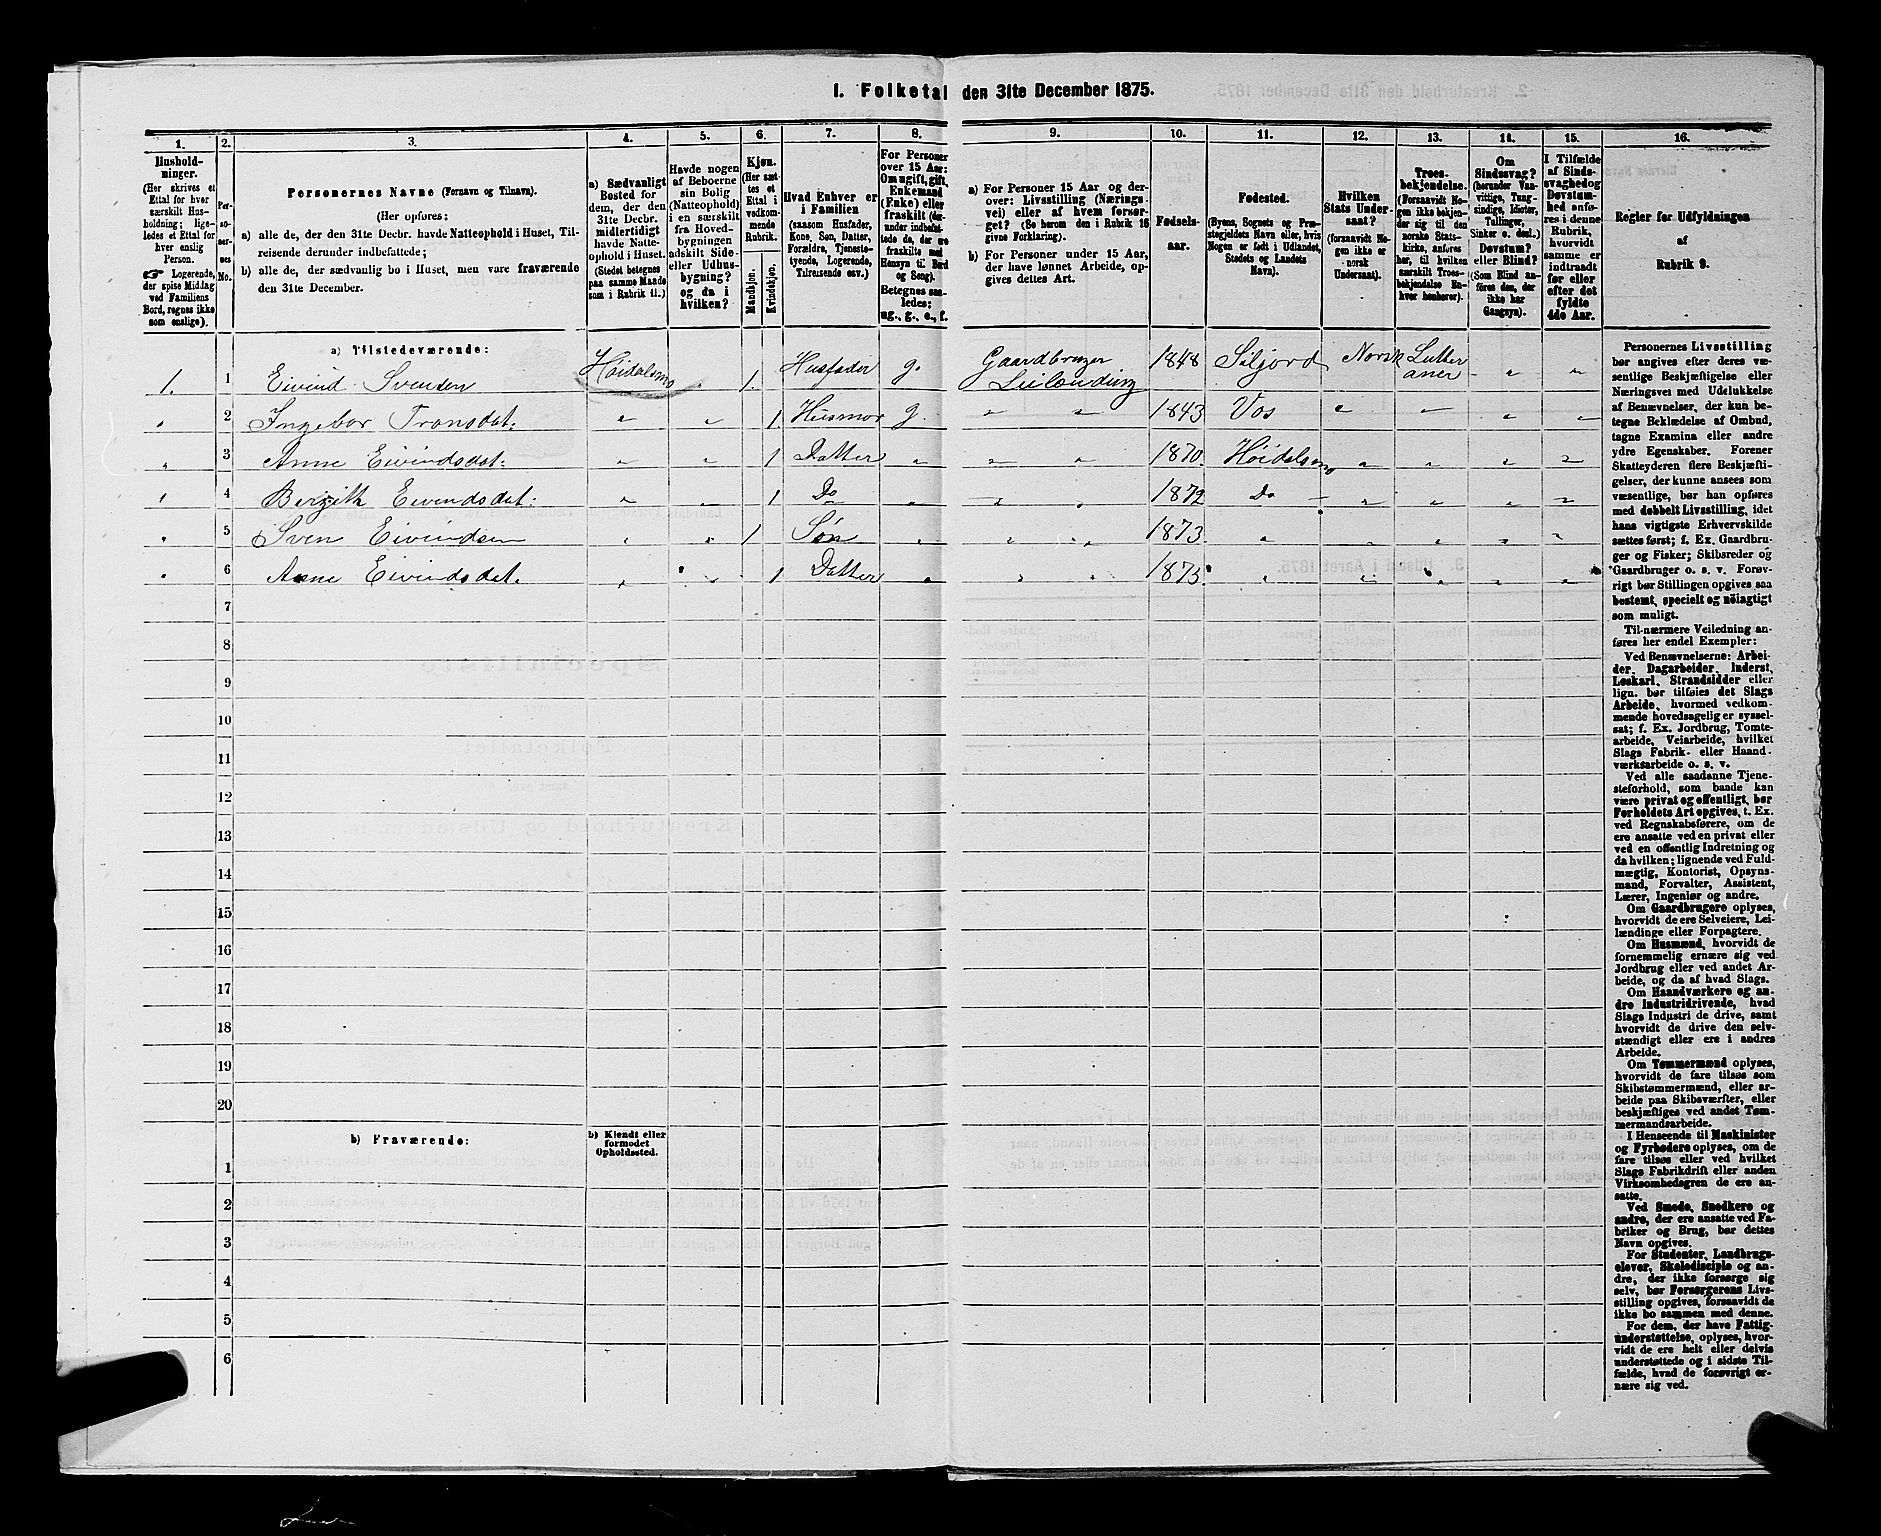 I. Folketal den 31te December 1875.
1. 2. 3. 4. 5. 6. 7. 8. 9. 10. 11. 12. 13. 14. 15. 16.
Hushold-
ninger.
(Her skrives et
Ettal for hver
særskilt Hus-
holdning; lige-
ledes et Ettal for
hver enslig
Person.
☞ Logerende,
der spise Middag
ved Familiens
Bord, regnes ikke
som enslige).
Per-
so-
ner-
nes
No.
Personernes Navne (Fornavn og Tilnavn).
(Her opføres:
a) alle de, der den 31te Decbr. havde Natteophold i Huset, Til-
reisende derunder indbefattede;
b) alle de, der sædvanlig bo i Huset, men vare fraværende
den 31te December.
a) Sædvanligt
Bosted for
dem, der den
31te Decbr.
midlertidigt
havde Natte-
ophold i Huset.
(Stedet betegnes
paa samme Maade
som i Rubrik 11.)
Havde nogen
af Beboerne
sin Bolig
(Natteophold)
i en særskilt
fra Hoved-
bygningen
adskilt Side-
eller Udhus-
bygning?
og da i
hvilken?
Kjøn.
(Her sæt-
tes et
Ettal i
vedkom-
mende
Rubrik.
Mandkjøn.
Kvindekjøn.
Hvad Enhver er
i Familien
(saasom Husfader,
Kone, Søn, Datter,
Forældre, Tjeneste-
tyende, Logerende,
Tilreisende osv.)
For Personer
over 15 Aar:
Om ugift, gift,
Enkemand
(Enke) eller
fraskilt (der-
under indbefat-
tede de, der ere
fraskilte med
Hensyn til Bord
og Seng).
Betegnes saa-
ledes:
ug., g., e., f.
a) For Personer 15 Aar og der-
over: Livsstilling (Nærings-
vei) eller af hvem forsør-
get? (Se herom den i Rubrik 16
givne Forklaring).
b) For Personer under 15 Aar,
der have lønnet Arbeide, op-
gives dettes Art.
Fødsels-
aar.
Fødested.
(Byens, Sognets og Præ-
stegjeldets Navn eller, hvis
Nogen er født i Udlandet,
Stedets og Landets
Navn).
Hvilken
Stats Under-
saat?
(forsaavidt No-
gen ikke er
norsk
Undersaat).
Troes-
bekjendelse.
(Forsaavidt No-
gen ikke bekjen-
der sig til den
norske Stats-
kirke, anføres
her, til hvilken
særskilt Troes-
bekjendelse En-
hver henhører).
Om
Sindssvag?
(herunder Van-
vittige, Tung-
sindige, Idioter,
Tullinger,
Sinker o. desl.)
Døvstum?
eller Blind?
(Som Blind an-
føres den, der
ikke har
Gangsyn).
I Tilfælde
af Sinds-
svaghed og
Døvstum-
hed anfø-
res i denne
Rubrik,
hvorvidt
samme er
indtraadt
før eller
efter det
fyldte
4de Aar.
Regler for Udfyldningen
af
Rubrik 9.
a) Tilstedeværende:
1. 1 Eivind Svensen Høidalsmo 1. Husfader g. Gaardbruger Leilænding 1848 Siljord Norsk Lutteraner
2 Ingebor Tronsdat: 1 Husmor g. 1843 Vos
3 Anne Eivindsdat: 1 Datter 1870. Høidalsmo
4 Bergith Eivendsdat: 1 Do 1872 Do
5 Sven Eivindsen 1 Søn 1873.
6 Asne Eivindsdat. 1 Datter 1875.
7
8
9
10
11
12
13
14
15
16
17
18
19
20
b) Fraværende:
b) Kjendt eller
formodet
Opholdssted.
1
2
3
4
5
6
Personernes Livsstilling
bør angives efter deres væ-
sentlige Beskjæftigelse eller
Næringsvei med Udelukkelse
af Benævnelser, der kun be-
tegne Beklædelse af Ombud,
tagne Examina eller andre
ydre Egenskaber. Forener
Skatteyderen flere Beskjæfti-
gelser, der kunne ansees som
væsentlige, bør han opføres
med dobbelt Livsstilling, idet
hans vigtigste Erhvervskilde
sættes først; f. Ex. Gaardbru-
ger og Fisker; Skibsreder og
Gaardbruger o. s. v. Forøv-
rigt bør Stillingen opgives saa
bestemt, specielt og nöiagtigt
som muligt.
Til nærmere Veiledning an-
føres her endel Exempler:
Ved Benævnelserne: Arbei-
der, Dagarbeider, Inderst,
Løskarl, Strandsidder eller
lign. bør tilføies det Slags
Arbeide, hvormed vedkom-
mende hovedsagelig er syssel-
sat; f. Ex. Jordbrug, Tomte-
arbeide, Veiarbeide, hvilket
Slags Fabrik- eller Haand-
værksarbeide o. s. v.
Ved alle saadanne Tjene-
steforhold, som baade kan
være privat og offentligt, bør
Forholdets Art opgives, t. Ex.
ved Regnskabsførere, om de
ere ansatte ved en privat eller
ved en offentlig Indretning og
da hvilken; lignende ved Fuld-
mægtig, Kontorist, Opsyns-
mand, Forvalter, Assistent,
Lærer, Ingeniør og andre.
Om Gaardbrugere oplyses,
hvorvidt de ere Selveiere, Lei-
lændinge eller Forpagtere.
Om Husmænd, hvorvidt de
fornemmelig ernære sig ved
Jordbrug eller ved andet Ar-
beide, og da af hvad Slags.
Om Haandværkere og an-
dre Industridrivende, hvad
Slags Industri de drive, samt
hvorvidt de drive den selv-
stændigt eller ere i andres
Arbeide.
Om Tømmermænd oplyses,
hvorvidt de fare tilsøs som
Skibstømmermænd, eller ar-
beide paa Skibsværfter, eller
beskjæftiges ved andet Tøm-
mermandsarbeide.
I Henseende til Maskinister
og Fyrbødere oplyses, om de
fare tilsøs eller ved hvilket
Slags Fabrikdrift eller anden
Virksomhedsgren de ere an-
satte.
Ved Smede, Snedkere og
andre, der ere ansatte ved Fa-
briker og Brug, bør dettes
Navn opgives.
For Studenter, Landbrugs-
elever, Skoledisciple og an-
dre, der ikke forsørge sig
selv, bør Forsørgerens Livs-
stilling opgives, forsaavidt de
ikke bo sammen med denne.
For dem, der have Fattig-
understøttelse, oplyses, hvor-
vidt de ere helt eller delvis
understøttede og i sidste Til-
fælde, hvad de forøvrigt er-
nære sig ved.